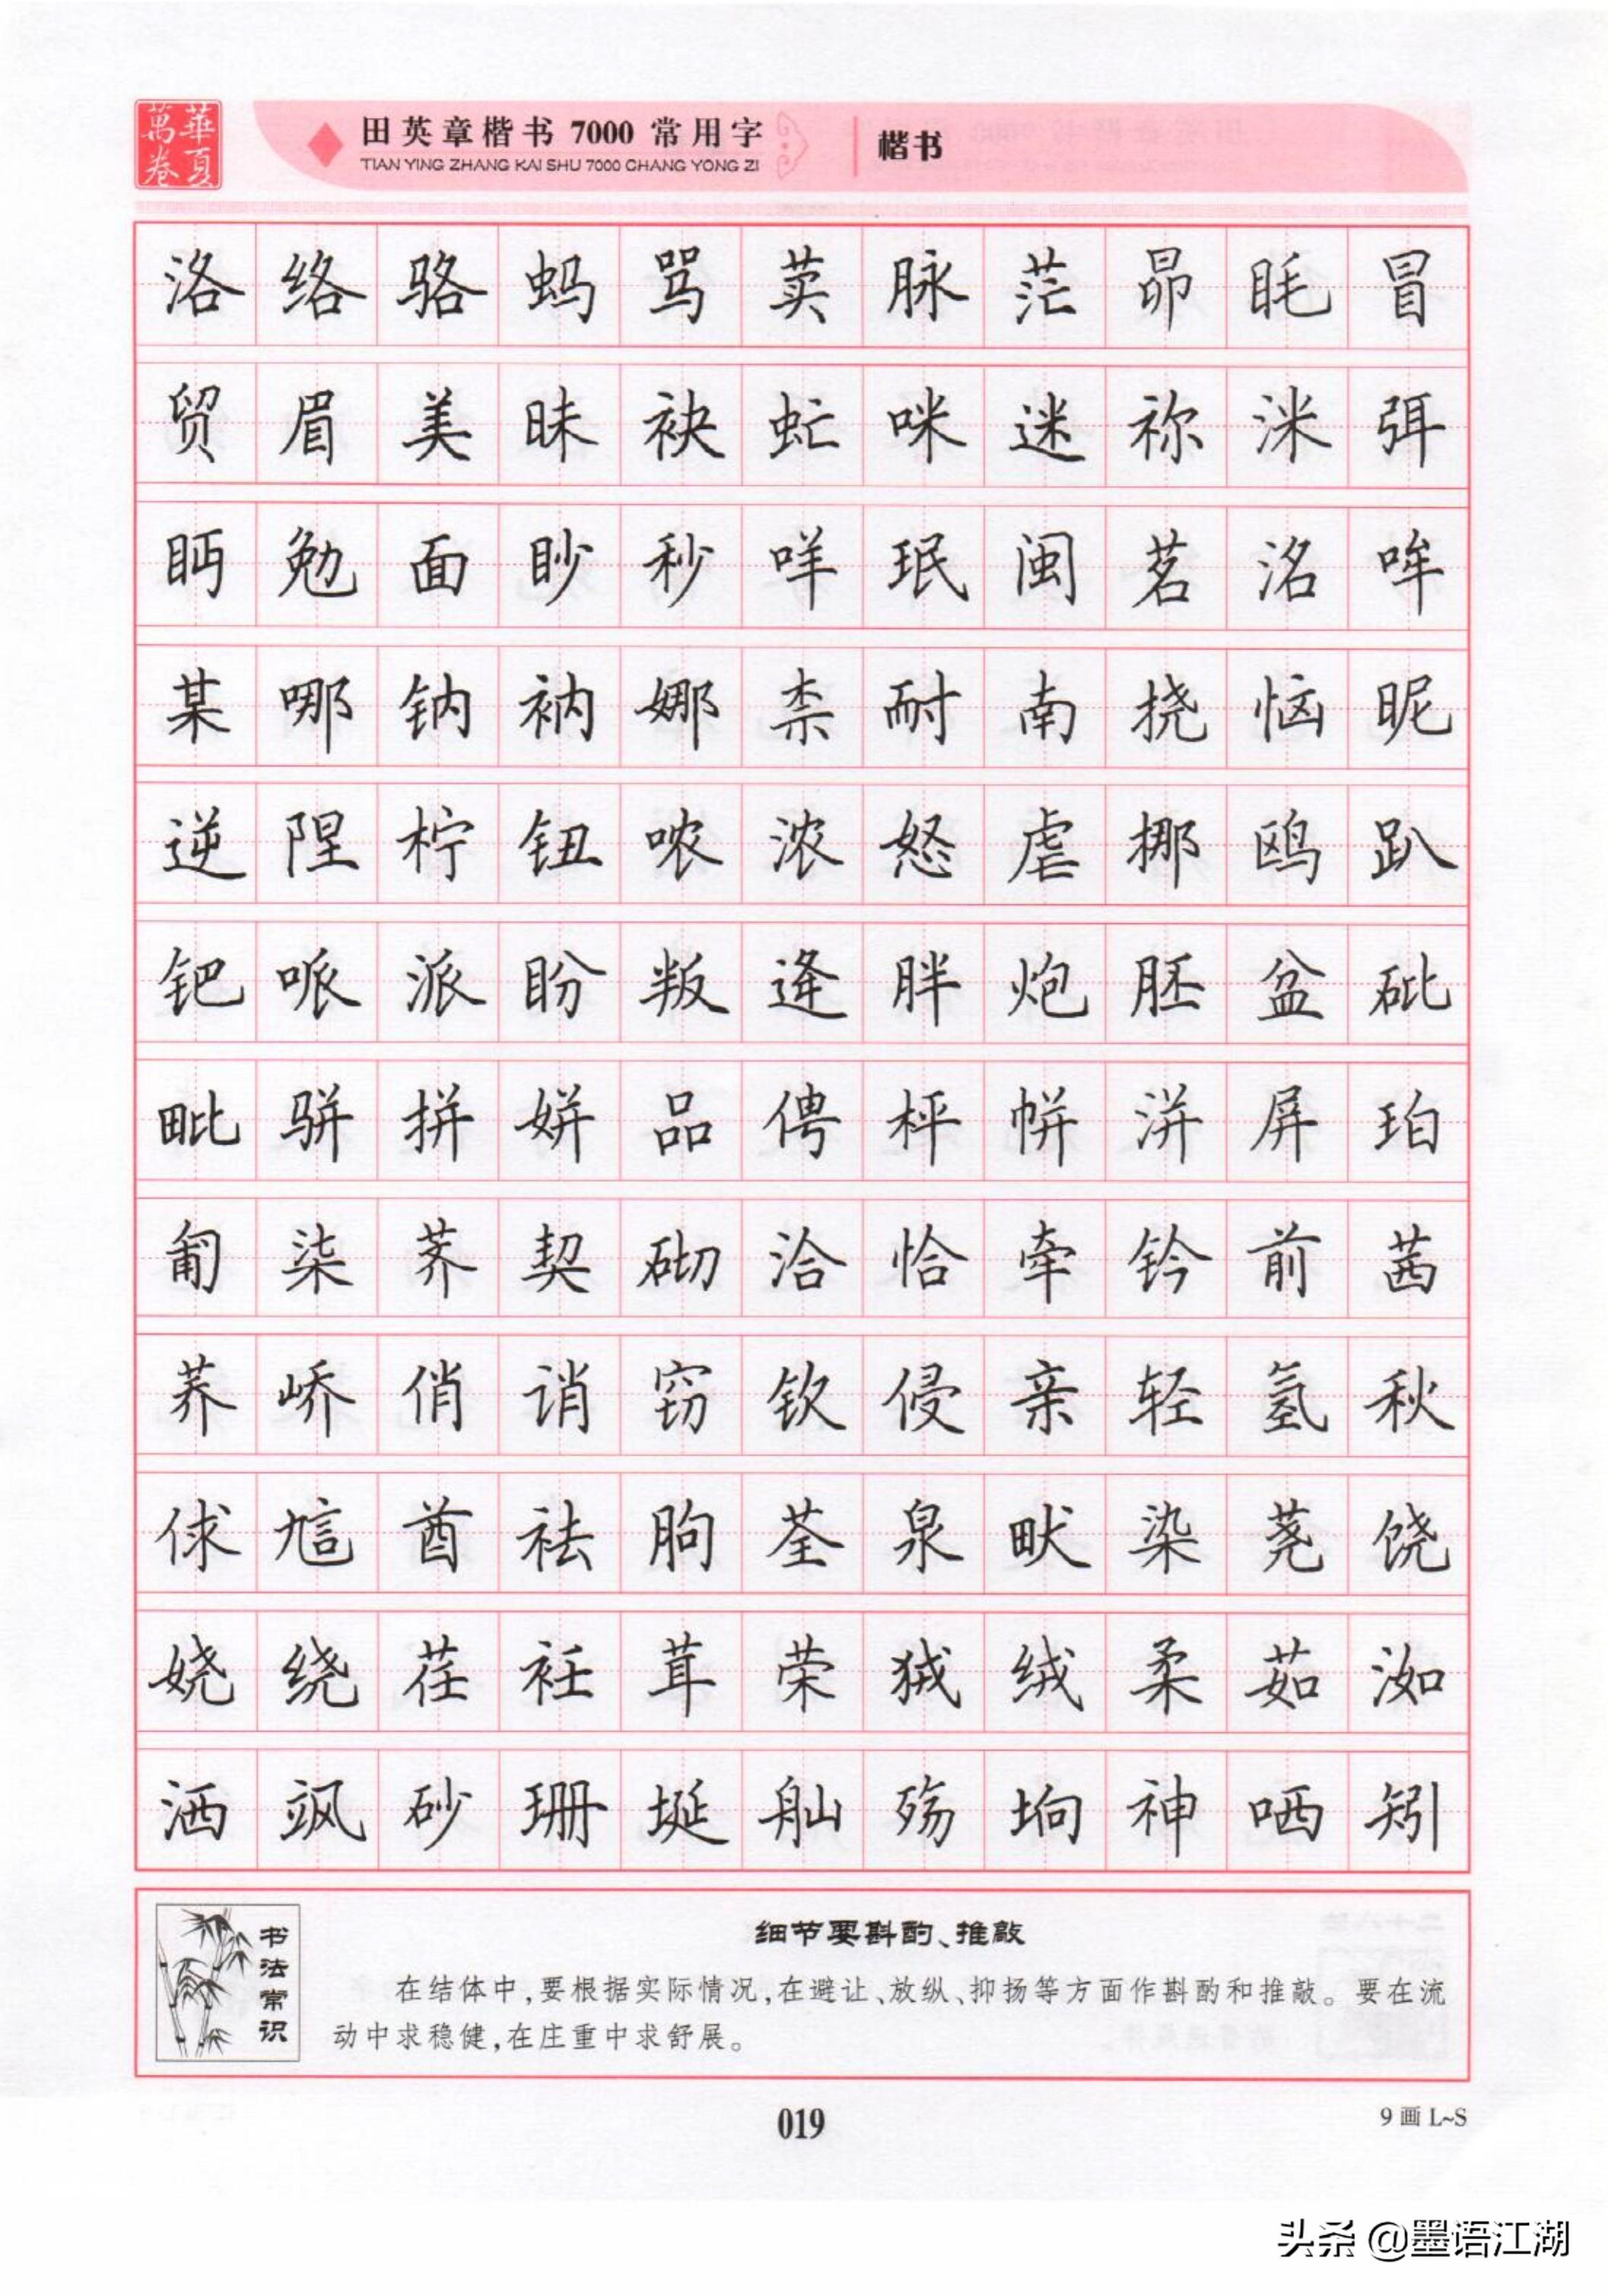 華夏萬卷
田英章楷书 7000 常用字
TIAN YING ZHANG KAI SHU 7000 CHANG YONG ZI
楷书
洛 络 骆 蚂 骂 荬 脉 茫 昴 眊 冒
贸 眉 美 昧 袂 虻 咪 迷 祢 洣 弭
眄 勉 面 眇 秒 咩 珉 闽 茗 洺 哞
某 哪 钠 衲 娜 柰 耐 南 挠 恼 昵
逆 陧 柠 钮 哝 浓 怒 虐 挪 鸥 趴
钯 哌 派 盼 叛 逄 胖 炮 胚 盆 砒
毗 骈 拼 姘 品 俜 枰 帡 洴 屏 珀
匍 柒 荠 契 砌 洽 恰 牵 钤 前 茜
荞 峤 俏 诮 窃 钦 侵 亲 轻 氢 秋
俅 訄 酋 祛 朐 荃 泉 畎 染 荛 饶
娆 绕 荏 衽 茸 荣 狨 绒 柔 茹 洳
洒 飒 砂 珊 埏 舢 殇 垧 神 哂 矧
书法常识
细节要斟酌、推敲
在结体中,要根据实际情况,在避让、放纵、抑扬等方面作斟酌和推敲。要在流
动中求稳健,在庄重中求舒展。
019
9 画 L~S
头条 @墨语江湖